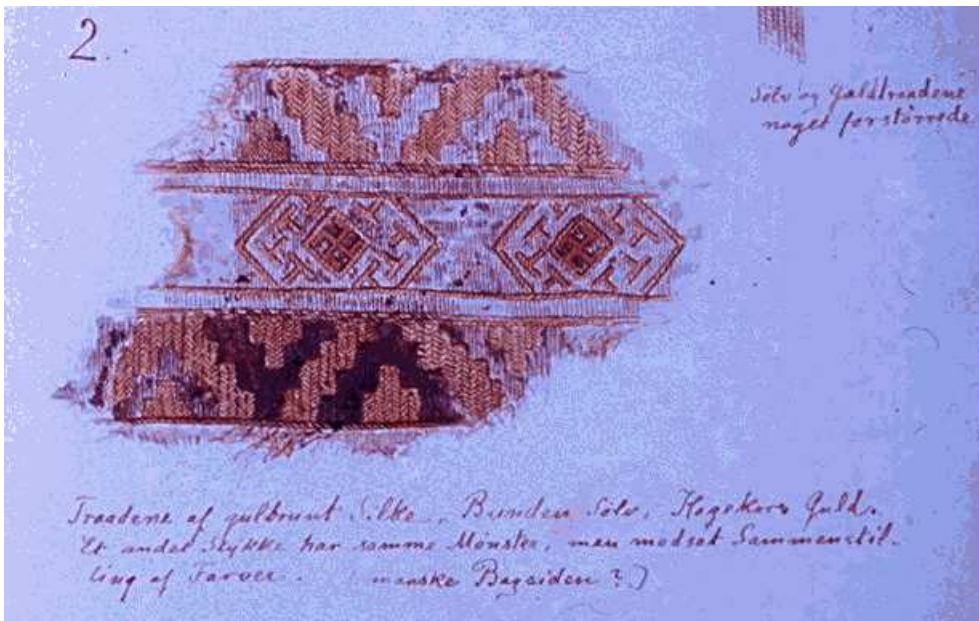 2.
Sölv og Guldtraadene
noget forstörrede
Traadene af gulbrunt Silke, Bunden Sölv, Hagekors Guld.
Et andet Stykke har samme Mönster, men modsat Sammenstil-
ling af Farver. (maaske Bagsiden?)